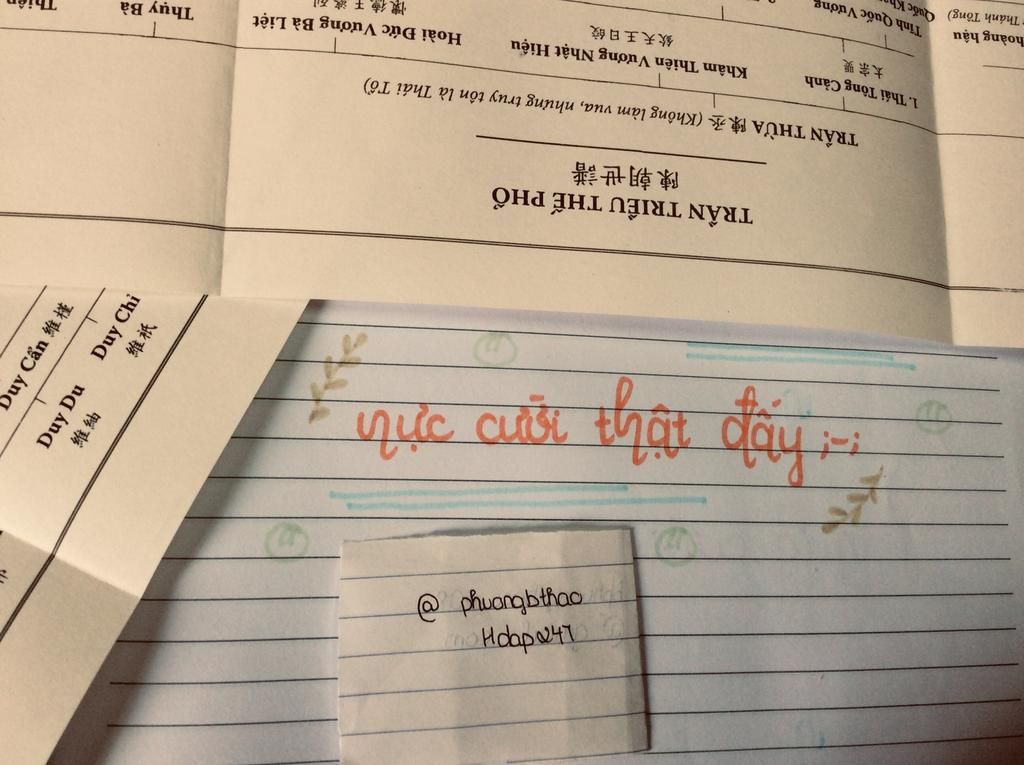 TRẦN TRIỀU THẾ PHỔ
陳朝世譜
TRẦN THỪA 陳丞 (Không làm vua, nhưng truy tôn là Thái Tổ)
1. Thái Tông Cảnh
太宗煚
Khâm Thiên Vương Nhật Hiệu
欽天王日皎
Hoài Đức Vương Bà Liệt
懷德王婆列
Thụy Bà
Thiên
Tĩnh Quốc Vương
Quốc Kh
hoàng hậu
Thánh Tông)
Duy Cẩn 維槿
Duy Chi
維祇
Duy Du
維紬
nực cười thật đấy ;-;
@ phuongbthao
Hdap247